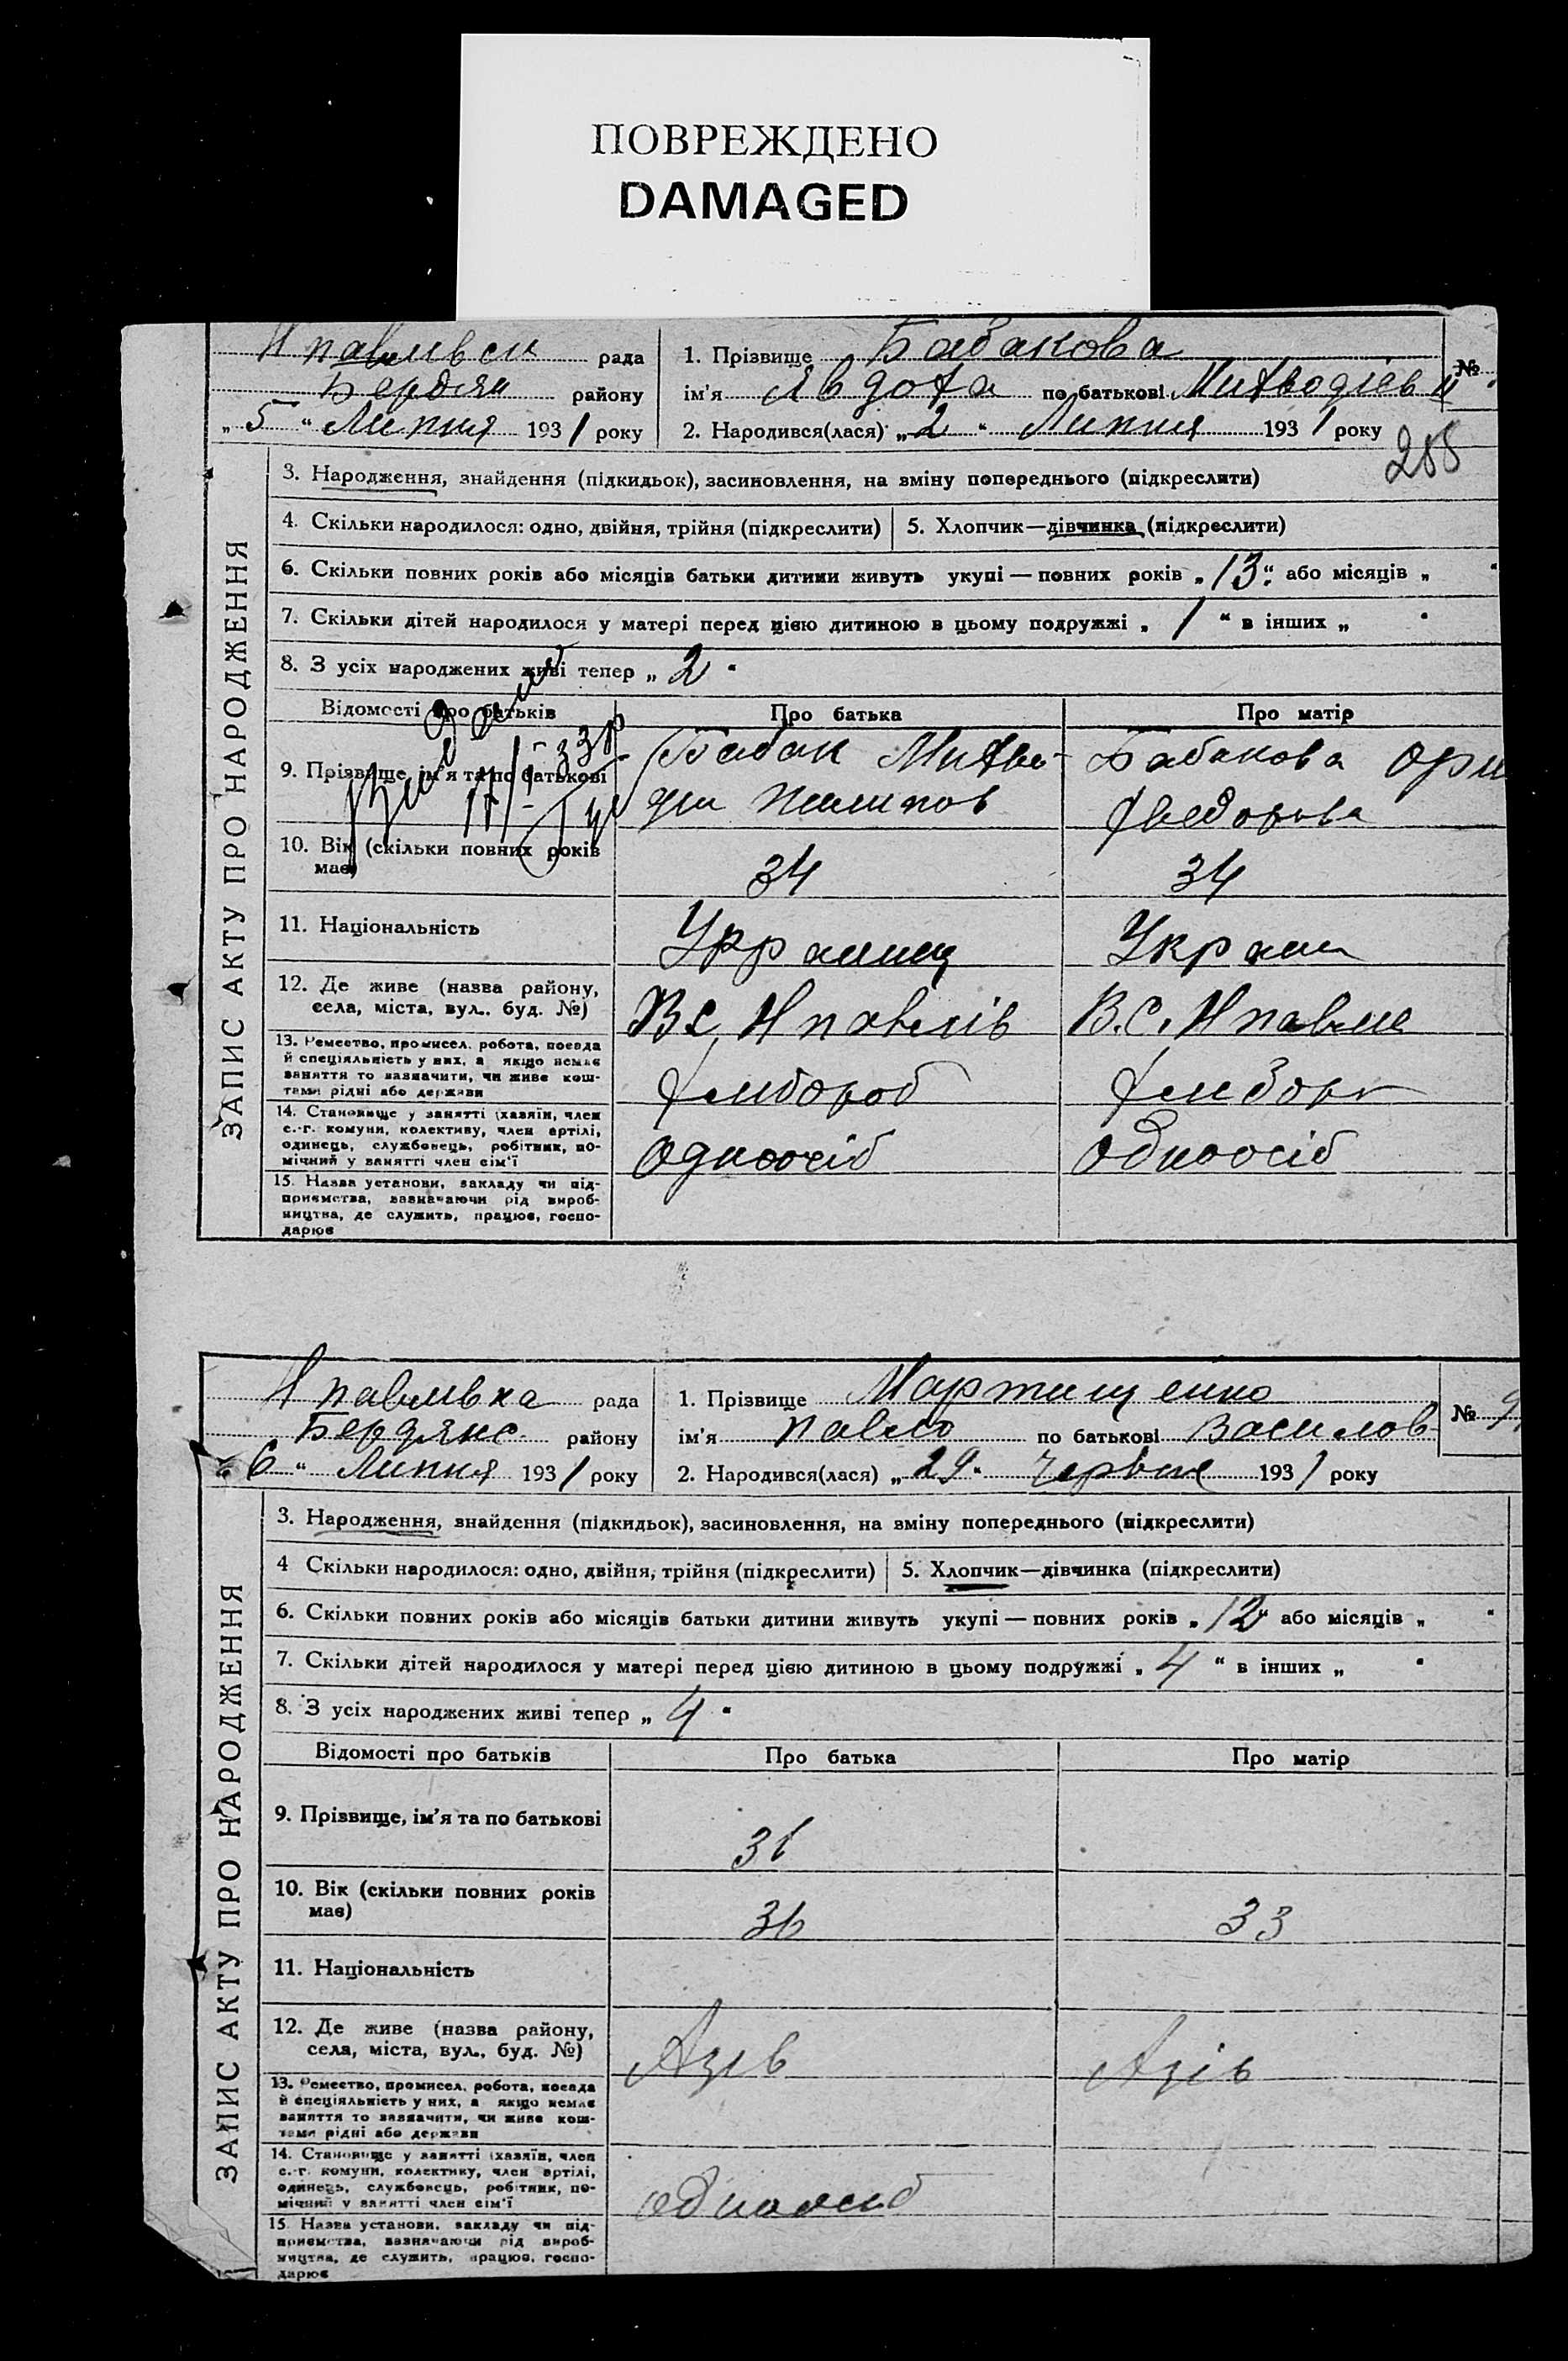 ПОВРЕЖДЕНО
DAMAGED
рада
Бердян району
„ 5 “ Липня 1931 року
1. Прізвище Бабакова
ім'я Явдота по батькові
№
2. Народився(лася) „ 2 “ Липня 1931 року
288
ЗАПИС АКТУ ПРО НАРОДЖЕННЯ
3. Народження, знайдення (підкидьок), засиновлення, на зміну попереднього (підкреслити)
4. Скільки народилося: одно, двійня, трійня (підкреслити)
5. Хлопчик—дівчинка (підкреслити)
6. Скільки повних років або місяців батьки дитини живуть укупі — повних років „ 13 “ або місяців „ “
7. Скільки дітей народилося у матері перед цією дитиною в цьому подружжі „ 1 “ в інших „ “
8. З усіх народжених живі тепер „ 2 “
Відомості про батьків
Про батька
Про матір
9. Прізвище, ім'я та по батькові
Бабак
Бабакова
Федорова
17/I-33р
10. Вік (скільки повних років має)
34
34
11. Національність
12. Де живе (назва району,
села, міста, вул., буд. №)
13. Ремество, промисел, робота, посада
й спеціяльність у них, а якщо немає
заняття то зазначити, чи живе кош-
тами рідні або держави
14. Становище у занятті (хазяїн, член
с.-г. комуни, колективу, член артілі,
одинець, службовець, робітник, по-
мічний у занятті член сім'ї
Одноосіб
Одноосіб
15. Назва установи, закладу чи під-
приємства, зазначаючи рід вироб-
ництва, де служить, працює, госпо-
дарює
рада
Бердянс району
„ 6 “ Липня 1931 року
1. Прізвище Мартищенко
ім'я Павло по батькові Василов
№ 9
2. Народився(лася) „ 29 “ Червня 1931 року
ЗАПИС АКТУ ПРО НАРОДЖЕННЯ
3. Народження, знайдення (підкидьок), засиновлення, на зміну попереднього (підкреслити)
4 Скільки народилося: одно, двійня, трійня (підкреслити)
5. Хлопчик—дівчинка (підкреслити)
6. Скільки повних років або місяців батьки дитини живуть укупі — повних років „ 12 “ або місяців „ “
7. Скільки дітей народилося у матері перед цією дитиною в цьому подружжі „ 4 “ в інших „ “
8. З усіх народжених живі тепер „ 4 “
Відомості про батьків
Про батька
Про матір
9. Прізвище, ім'я та по батькові
10. Вік (скільки повних років має)
36
33
11. Національність
12. Де живе (назва району,
села, міста, вул., буд. №)
Азів
Азів
13. Ремество, промисел, робота, посада
й спеціяльність у них, а якщо немає
заняття то зазначити, чи живе кош-
тами рідні або держави
14. Становище у занятті (хазяїн, член
с.-г. комуни, колективу, член артілі,
одинець, службовець, робітник, по-
мічний у занятті член сім'ї
15. Назва установи, закладу чи під-
приємства, зазначаючи рід вироб-
ництва, де служить, працює, госпо-
дарює